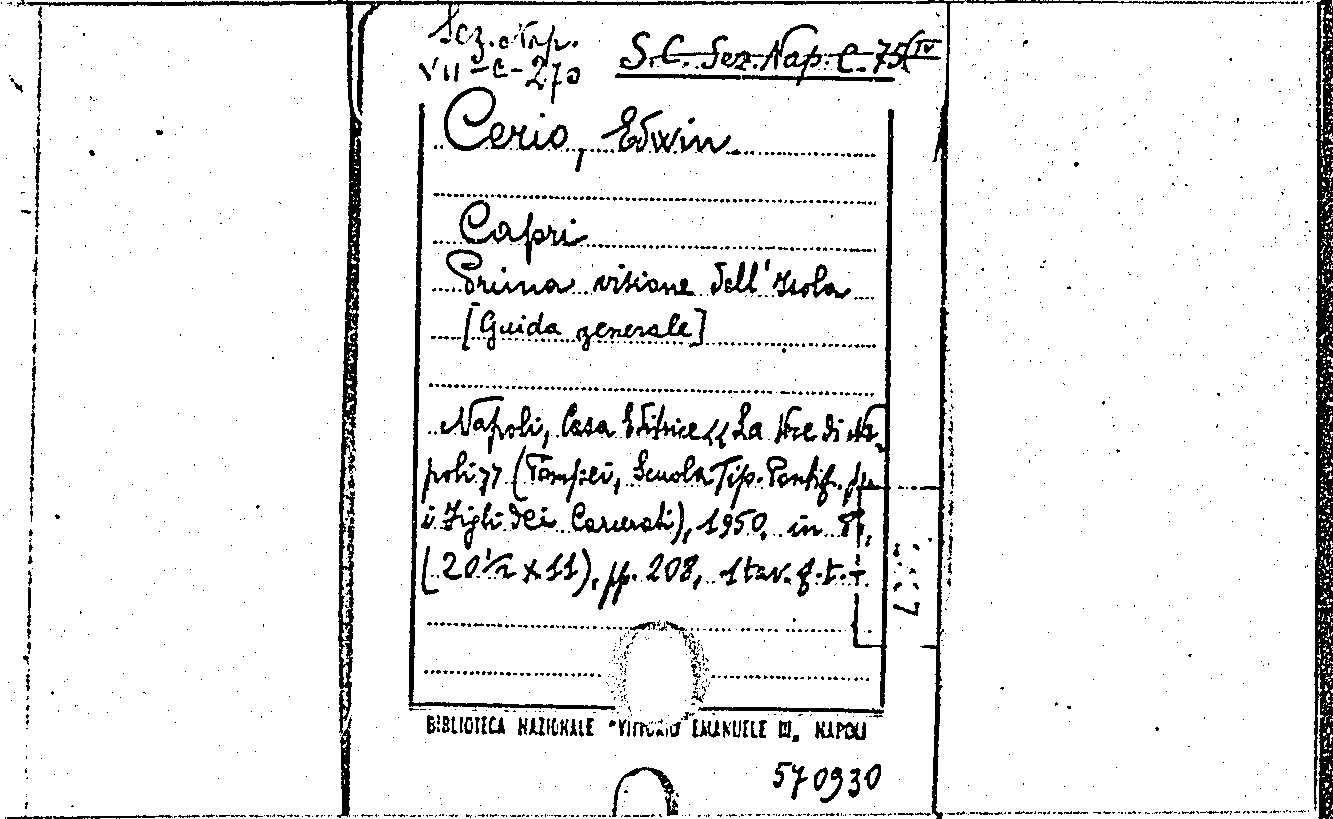 Sez. Nap.
VII-C-270
S.C. Sez. Nap. C. 75(IV
Cerio, Edwin
Capri
Prima visione dell'Isola
[Guida generale]
Napoli, Casa Editrice «La Voce di Na
poli» (Pompei, Scuola Tip. Pontif. per
i Figli dei Carcerati), 1950, in 8°,
(20½ x 11), pp. 208, 1 tav. f. t.
BIBLIOTECA NAZIONALE "VITTORIO EMANUELE III" NAPOLI
570930